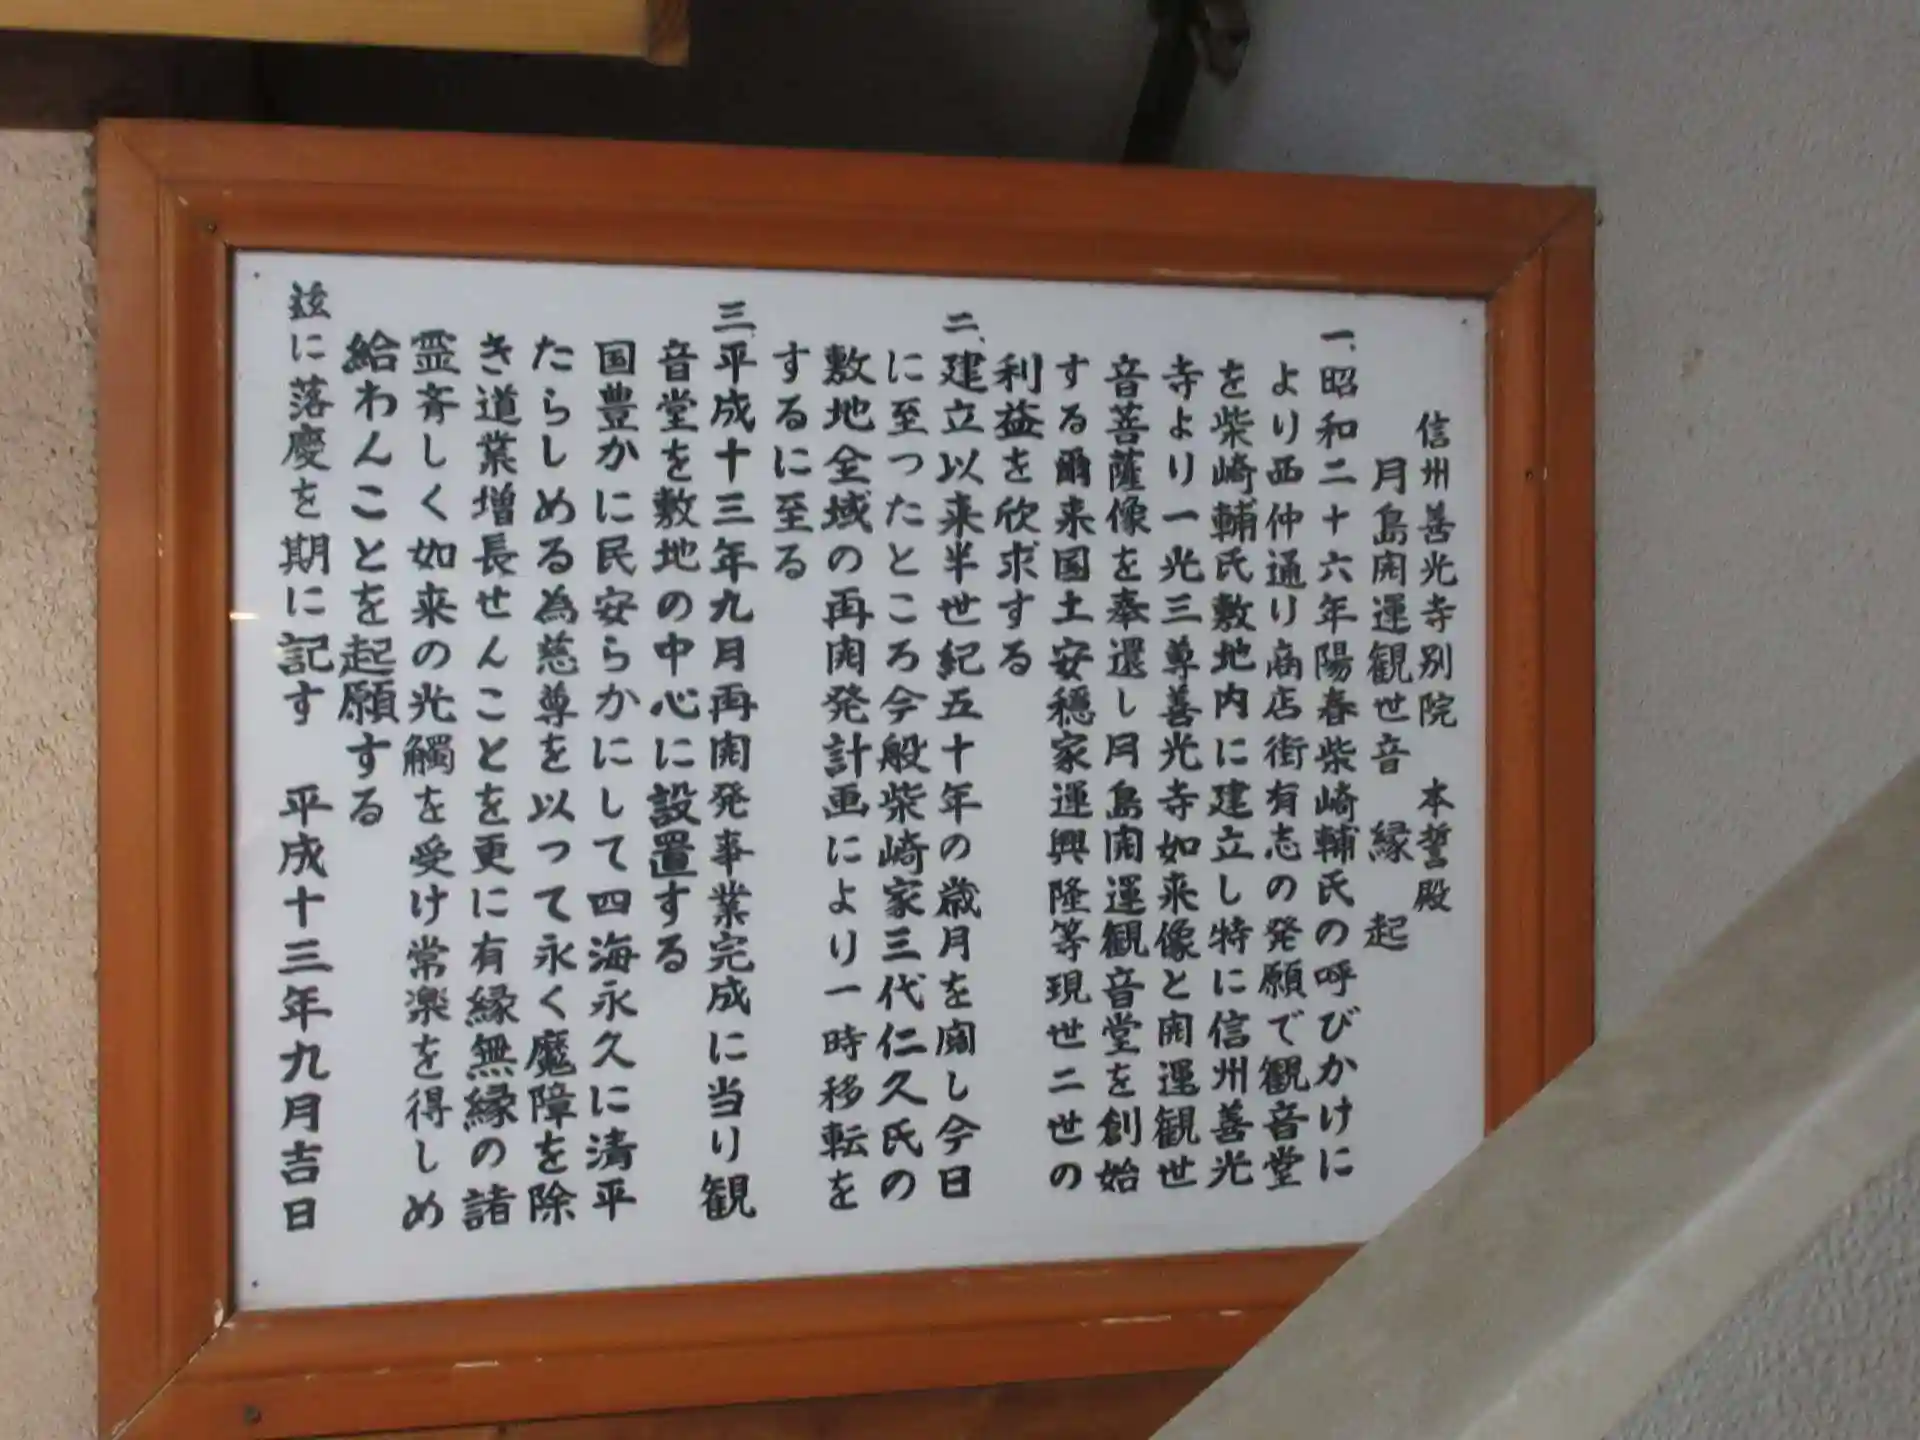 信州善光寺別院　本誓殿
月島開運観世音　縁　起
一、昭和二十六年陽春柴崎輔氏の呼びかけに
より西仲通り商店街有志の発願で観音堂
を柴崎輔氏敷地内に建立し特に信州善光
寺より一光三尊善光寺如来像と開運観世
音菩薩像を奉還し月島開運観音堂を創始
する爾来国土安穏家運興隆等現世二世の
利益を欣求する
二、建立以来半世紀五十年の歳月を閲し今日
に至ったところ今般柴崎家三代仁久氏の
敷地全域の再開発計画により一時移転を
するに至る
三、平成十三年九月再開発事業完成に当り観
音堂を敷地の中心に設置する
国豊かに民安らかにして四海永久に清平
たらしめる為慈尊を以って永く魔障を除
き道業増長せんことを更に有縁無縁の諸
霊斉しく如来の光觸を受け常楽を得しめ
給わんことを起願する
玆に落慶を期に記す　平成十三年九月吉日